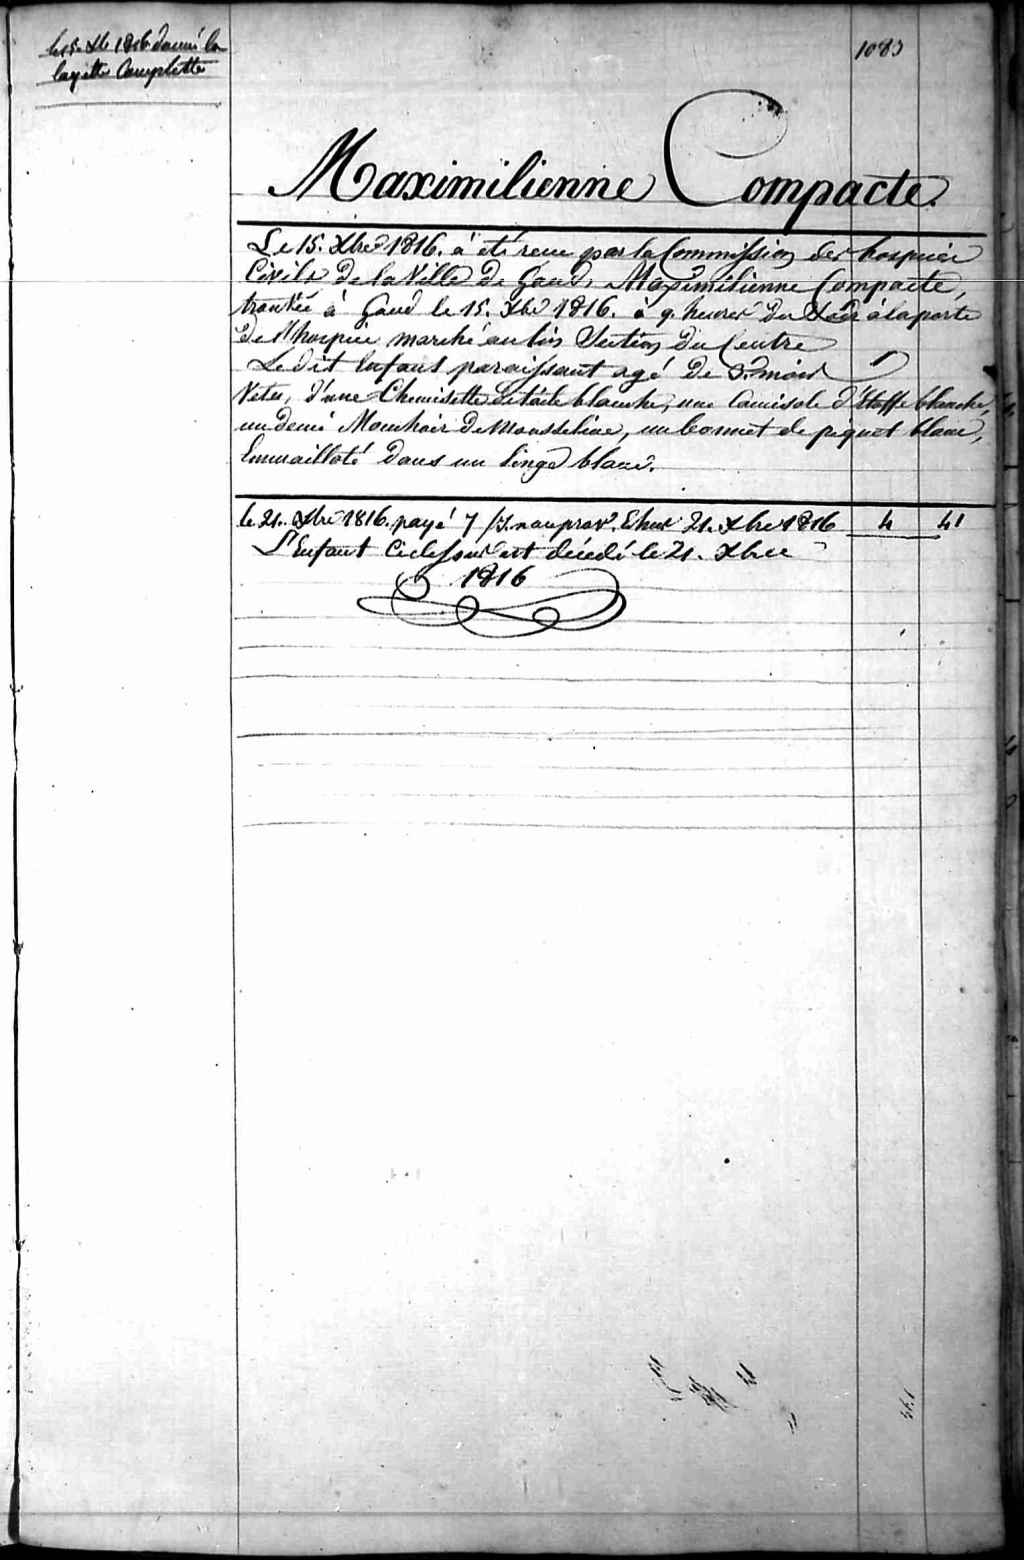 le 15. Xbre 1816 donné la
layette Complette
1083
Maximilienne Compacte
Le 15. Xbre 1816. à été reçue par la Commission des hospices
Civils de la Ville de Gand, Maximilienne Compacte,
trouvée à Gand le 15. Xbre 1816. à 9 heures du Soir à la porte
de l'hospice marché au lin Section du Centre
Le dit Enfant paraissant agé de 3. mois
Vetu, d'une Chemisette de toile blanche, une Camisole d'Etoffe blanche,
un demi Mouchoir de Mousseline, un bonnet de piquet blanc,
Emmailloté dans un linge blanc.
le 21. Xbre 1816. payé 7 21. Xbre 1816 4 41
L'Enfant Cidessus est décédé le 21. Xbre
1816